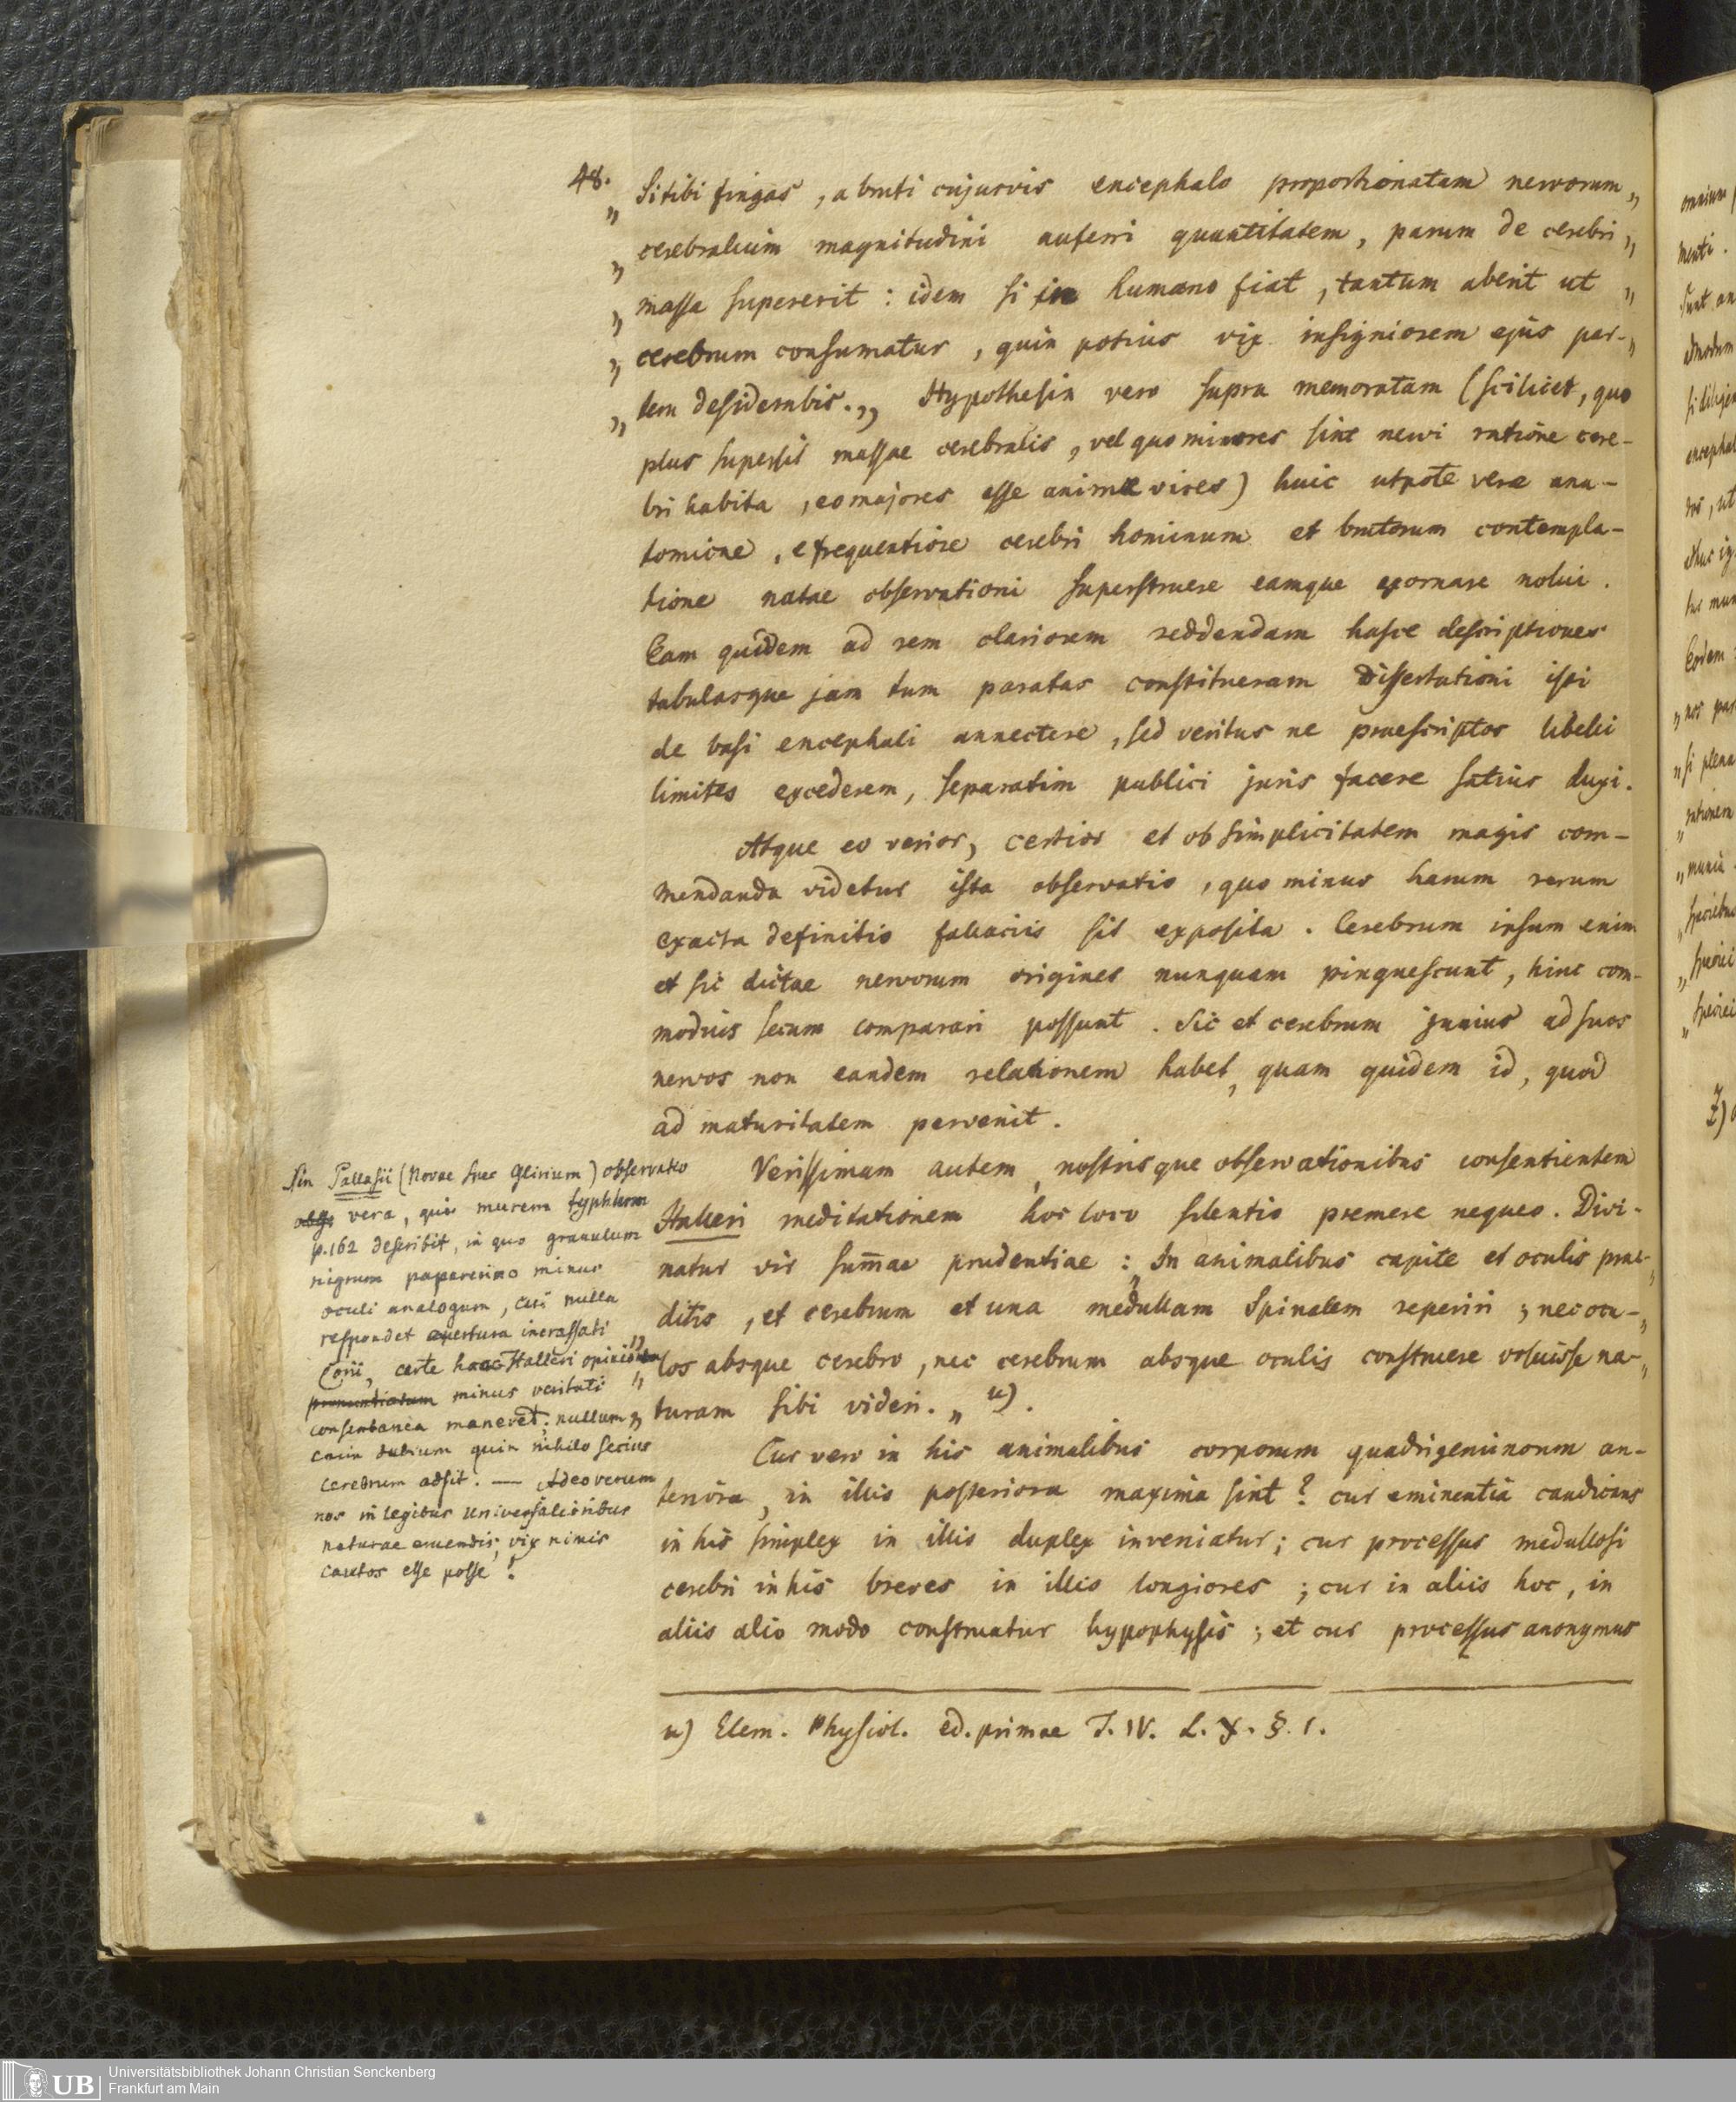 48.
„ Si tibi fingas, a bruti cujusvis encephalo proportionatam nervorum „
„ cerebralium magnitudini auferri quantitatem, parum de cerebri „
„ massa supererit : idem si in humano fiat, tantum aberit ut „
„ cerebrum consumatur, quin potius vix insigniorem ejus par- „
„ tem desiderabis. „ Hypothesin vero supra memoratam (scilicet, quo
plus supersit massae cerebralis, vel quo minores sint nervi ratione cere-
bri habita, eo majores esse animae vires) huic utpote verae ana-
tomicae, e frequentiore cerebri hominum et brutorum contempla-
tione natae observationi superstruere eamque exornare nolui.
Eam quidem ad rem clariorem reddendam hasce descriptiones
tabulasque jam tum paratas constitueram Dissertationi isti
de basi encephali annectere, sed veritus ne praescriptos libelli
limites excederem, separatim publici juris facere satius duxi.
Atque eo verior, certior et ob simplicitatem magis com-
mendanda videtur ista observatio, quo minus harum rerum
exacta definitio fallaciis sit exposita. Cerebrum ipsum enim
et sic dictae nervorum origines nunquam pinguescunt, hinc com-
modius secum comparari possunt. Sic et cerebrum junius ad suos
nervos non eandem relationem habet, quam quidem id, quod
ad maturitatem pervenit.
Verissimam autem, nostrisque observationibus consentientem
Halleri meditationem hoc loco silentio premere nequeo. Divi-
natur vir summae prudentiae : „ In animalibus capite et oculis prae- „
ditis, et cerebrum et una medullam spinalem reperiri ; nec ocu- „
„ los absque cerebro, nec cerebrum absque oculis construere voluisse na- „
„ turam sibi videri. „ u).
Cur vero in his animalibus corporum quadrigeminorum an-
teriora, in illis posteriora maxima sint? cur eminentia candicans
in his simplex in illis duplex inveniatur; cur processus medullosi
cerebri in his breves in illis longiores ; cur in aliis hoc, in
aliis alio modo construatur hypophysis ; et cur processus anonymus
u) Elem. Physiol. ed. primae T. IV. L. X. §. 1.
Sin Pallasii (Novae spec Glirium) observatio
vera, qui murem typhlum
p. 162 describit, in quo granulum
nigrum papaverino minus
oculi analogum, cui nulla
respondet apertura incrassati
Corii, certe haec Halleri opinio
pronuntiatum minus veritati
consentanea maneret; nullum
enim dubium quin nihilo secius
cerebrum adsit. — Adeo verum
nos in legibus universalioribus
naturae eruendis, vix nimis
cautos esse posse !
omnium
menti.
sunt
admodum
encephal
Eodem
„ nos
„ si plena
„ rationem
2)
UB
Universitätsbibliothek Johann Christian Senckenberg
Frankfurt am Main